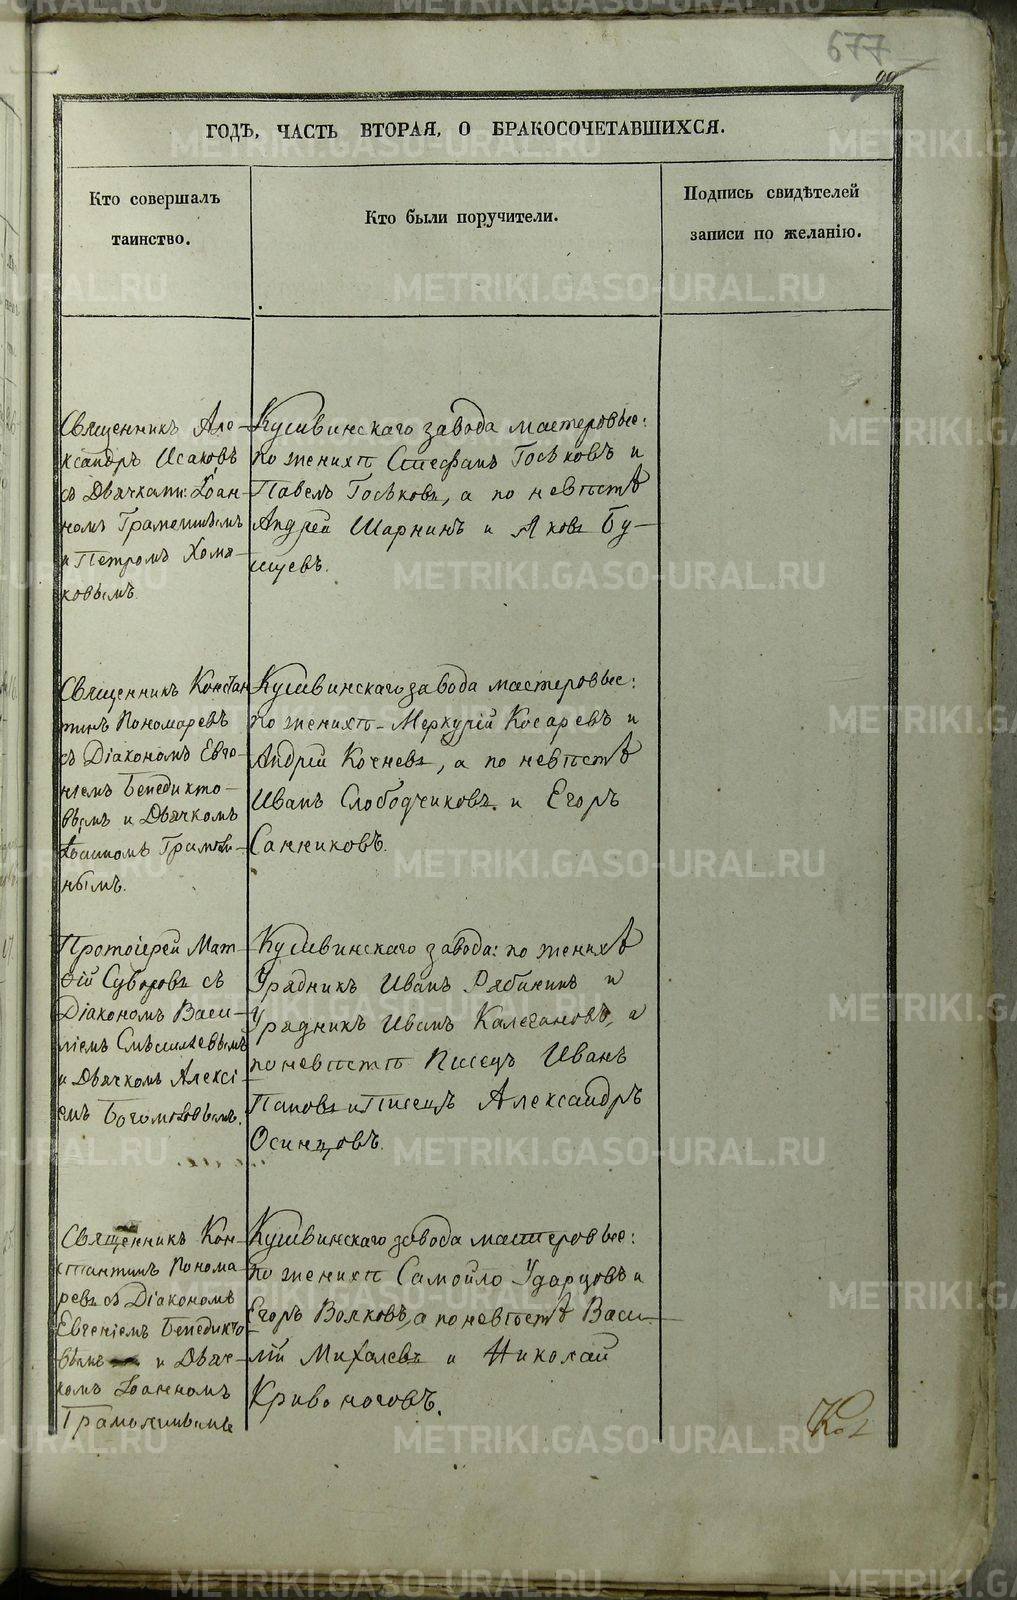 677
99
ГОДЪ, ЧАСТЬ ВТОРАЯ, О БРАКОСОЧЕТАВШИХСЯ.
Кто совершалъ
таинство.
Кто были поручители.
Подпись свидѣтелей
записи по желанію.
Священникъ Але-
ксандръ Исаковъ
съ Дьячками: Іоан-
номъ
и Петромъ Хомя-
ковымъ.
Кушвинскаго завода мастеровые:
по женихѣ Стефанъ Госьковъ и
Павелъ Госьковъ, а по невѣстѣ
Андрей Шарнинъ и Яковъ Бу-
шуевъ.
Священникъ Констан
тинъ Пономаревъ
съ Діакономъ Евге-
ніемъ Бенедикто-
вымъ и Дьячкомъ
Іоанномъ
нымъ.
Кушвинскаго завода мастеровые:
по женихѣ Меркурій Косаревъ и
Андрей Кочневъ, а по невѣстѣ
Иванъ Слободчиковъ и Егоръ
Санниковъ.
Протоіерей Мат-
ѳій Суворовъ съ
Діакономъ Васи-
ліемъ
и Дьячкомъ Алексі-
емъ Богомоловымъ.
Кушвинскаго завода: по женихѣ
Урядникъ Иванъ Рябининъ и
Урядникъ Иванъ Калегановъ, а
по невѣстѣ Писецъ Иванъ
Поповъ и Писецъ Александръ
Осинцовъ.
Священникъ Кон-
стантинъ Понома
ревъ съ Діакономъ
Евгеніемъ Бенедикто
вымъ и Дьяч-
комъ Іоанномъ
Грамолинымъ
Кушвинскаго завода мастеровые:
по женихѣ Самойло Ударцовъ и
Егоръ Волковъ, а по невѣстѣ Васи-
лій Михалевъ и Николай
Кривоноговъ.
METRIKI.GASO-URAL.RU